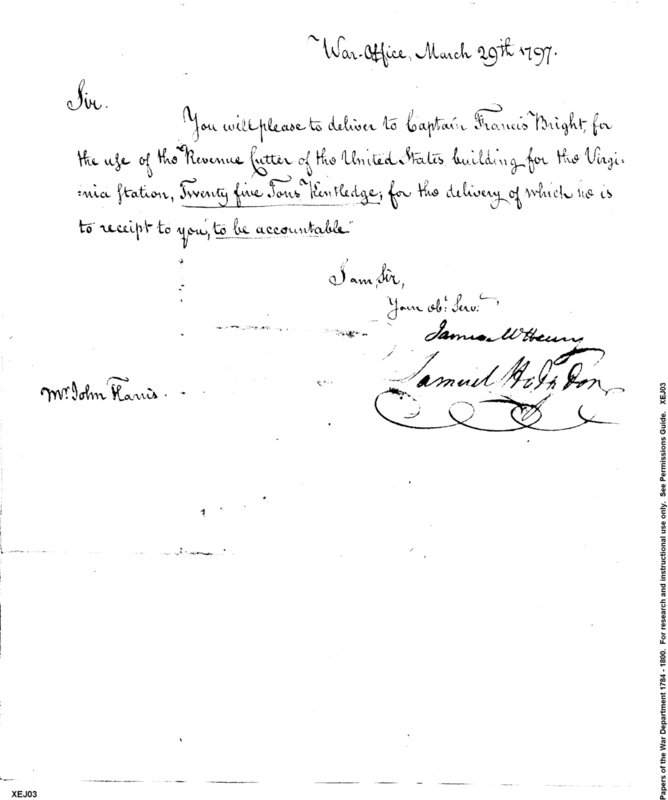 War-Office, March 29th 1797.
Sir.
You will please to deliver to Captain Francis Bright, for
the use of the Revenue Cutter of the United States building for the Virgi-
=nia Station, Twenty five Tons Kentledge, for the delivery of which he is
to receipt to you, to be accountable.
I am, Sir,
Your obt. Servt.
James McHenry
Samuel Hodgdon
Mr. John Harris.
Papers of the War Department 1784 - 1800. For research and instructional use only. See Permissions Guide. XEJ03
XEJ03